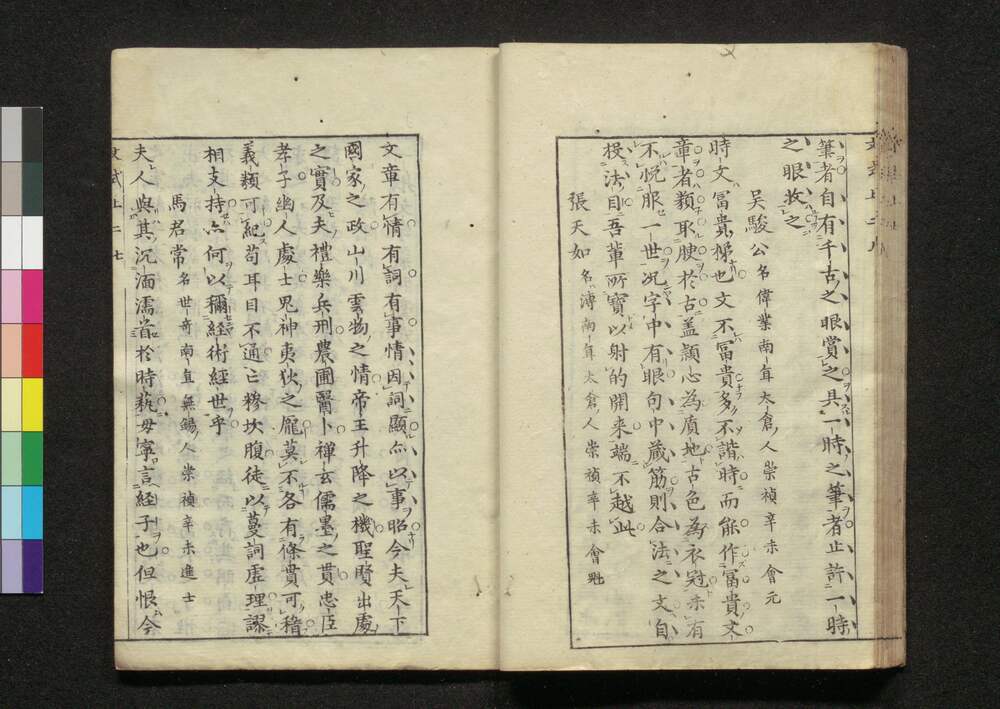 筆者自有千古之眼賞之具一時之筆者止許一時
之眼收之
吳駿公名偉業南直太倉人崇禎辛未會元
時文冨貴梯也文不冨貴多不諧時而能作冨貴文
章者類取腴於古盖穎心為質地古色為衣冠未有
不悅服一世况字中有眼句中藏筋則合法之文自
投法目吾輩所寶以射的開来端不越此
張天如名溥南直太倉人崇禎辛未會魁
文章有情有詞有事情因詞顯亦以事昭今夫天下
國家之政山川雲物之情帝王升降之機聖賢出處
之實及夫禮樂兵刑農圃醫卜禪玄儒墨之貫忠臣
孝子幽人處士鬼神夷狄之龎莫不各有條貫可稽
義類可紀苟耳目不通亡糝坎腹徒以蔓詞虛理謬
相支持亦何以稱經術經世乎
馬君常名世奇南直無錫人崇禎辛未進士
夫人與其沉湎濡首於時藝毋寧言經子也但恨今
文式上二七